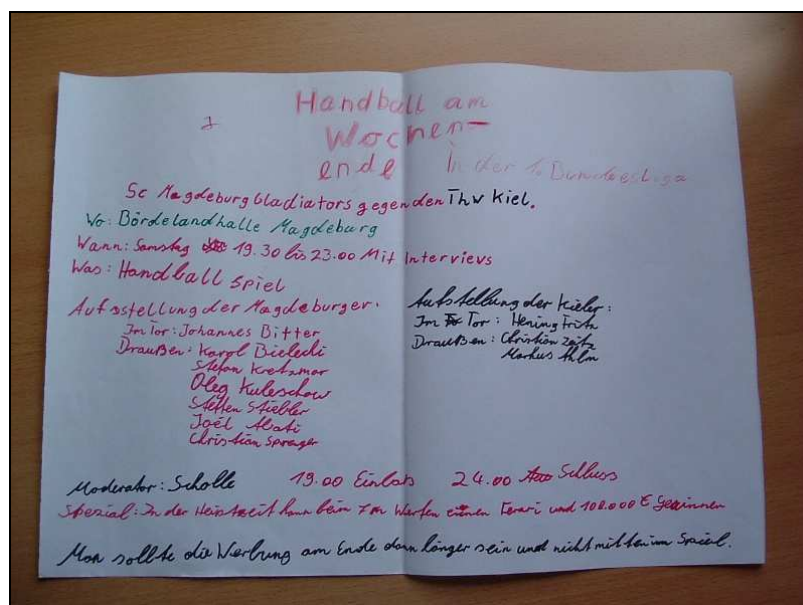 Handball am
Wochen-
ende In der 1. Bundesliga
Sc Magdeburg Gladiators gegen den Thw Kiel.
Wo: Bördelandhalle Magdeburg
Wann: Samstag 19.30 bis 23.00 Mit Interviews
Was: Handball spiel
Aufsstellung der Magdeburger.
Im Tor: Johannes Bitter
Draußen: Karol Bielecki
Stefan Kretzmar
Oleg Kuleschow
Steffen Stiebler
Joël Abati
Christian Sprenger
Aufstellung der Kieler:
Im Tor: Hening Fritz
Draußen: Christian Zeitz
Markus Ahlm
Moderator: Scholle 19.00 Einlass 24.00 Schluss
Spezial: In der kann beim 7m Werfen einen Ferari und 100.000 € Gewinnen
Man sollte die Werbung am Ende dann länger sein und nicht mitten im